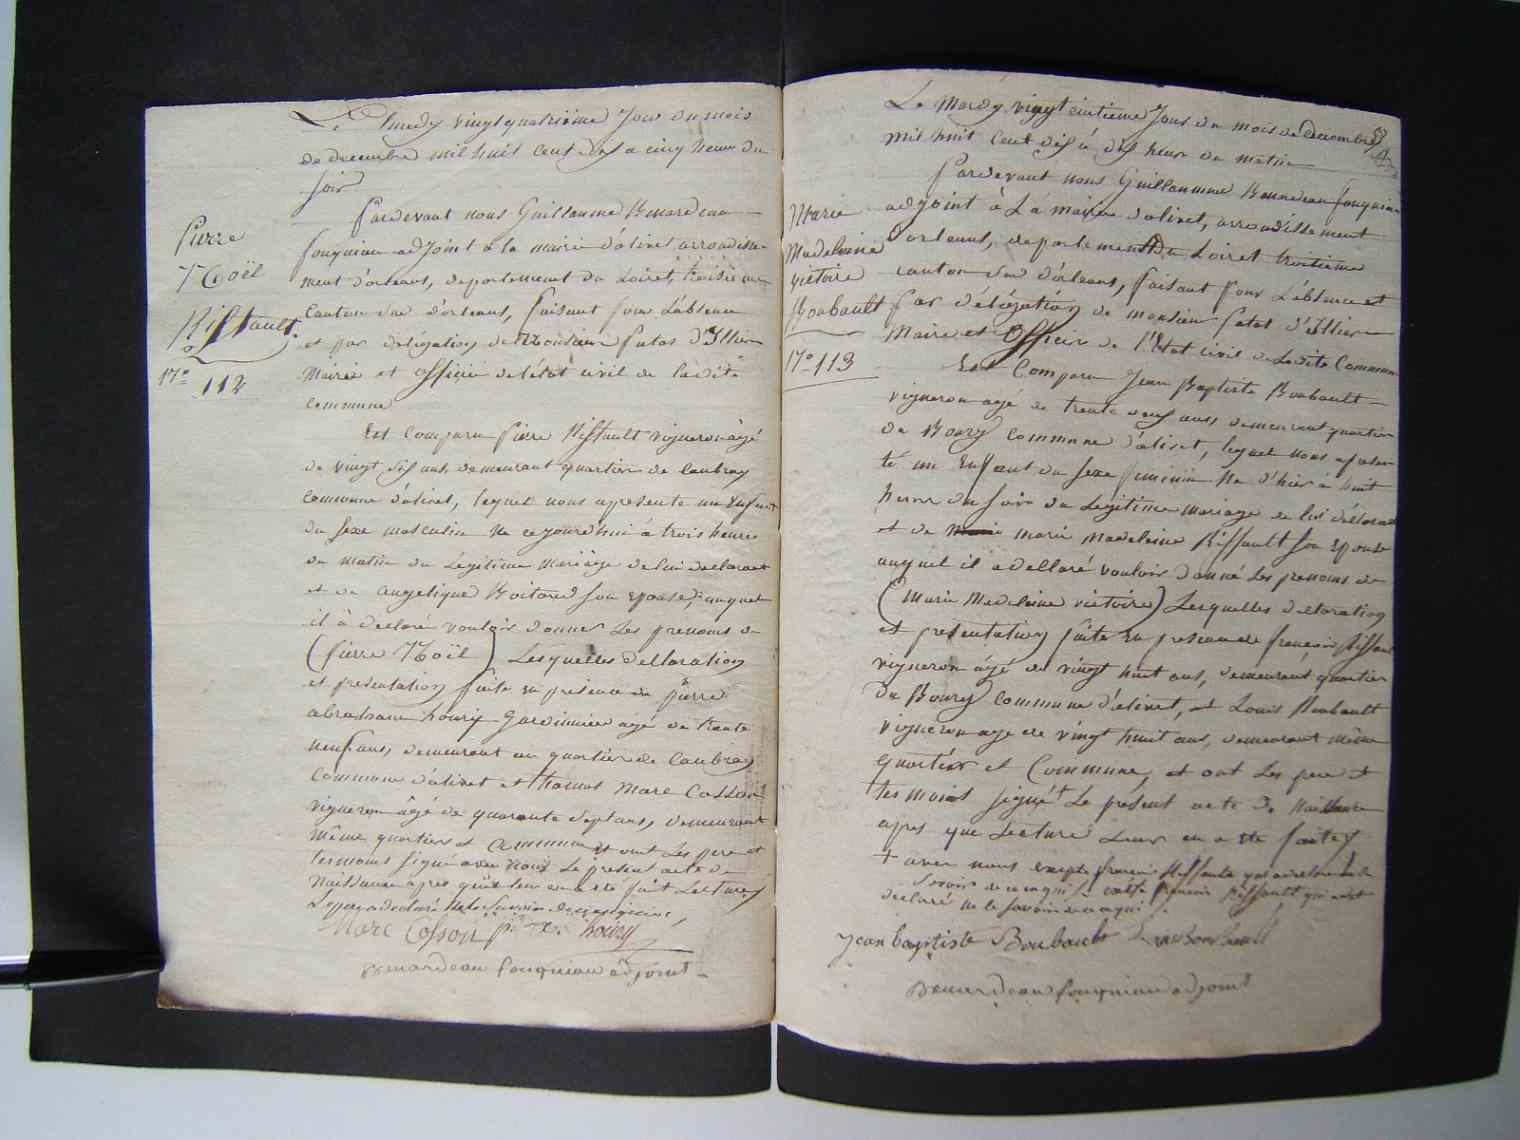 Pierre
Noël
Riffault
N° 112
Le Lundy vingt quatrième Jour du mois
de decembre mil huit Cent dix a cinq heure du
soir
Pardevant nous Guillaume Benardeau
fouquiau adjoint à la mairie d'olivet arrondisse-
ment d'orleans, departement du Loiret, troisieme
Canton sud d'orleans, faisant pour L'absence
et par délégation de Monsieur Patas D'Illiers
Maire et officier de l'état civil de la dite
Commune
Est Comparu Pierre Riffault vigneron âgé
de vingt six ans, demeurant quartier de Caubray
Commune d'olivet, lequel nous apresente un Enfant
du sexe masculin Né ce jourd'hui à trois heures
du matin du Légitime Mariage de lui declarant
et de Angelique Boitard son Epouse, auquel
il à declaré vouloir donner Les prenoms de
(Pierre Noël) Lesquelles declaration
et presentation faite en presence de Pierre
abraham houry Gardinnier âgé de trente
neuf ans, demeurant au quartier de Caubray
Commune d'olivet et thomas Marc Cosson
vigneron âgé de quarante sept ans, demeurant
même quartier et Commune et ont Les pere et
temoins signé avec nous Le present acte de
Naissance apres quil leur en a été fait Lecture
Le pere a declaré ne le savoir de ce enquis
Marc Cosson houry
Benardeau fouquiau adjoint
Marie
Madeleine
victoire
Boubault
N° 113
Le Mardy vingt cintieme Jour du mois de Decembre
mil huit Cent dix à dix heure du matin
Pardevant nous Guillaumme Bennardeau fouquiau
adjoint à La mairie d'olivet, arrondissement
d'orleans, departement Du Loiret troitieme
canton sud d'orleans, faisant pour L'absence et
par délégation de monsieur Patas d'Illiers
Maire et Officier de l'Etat civil de Ladite Commune
Est Comparu Jean Baptiste Boubault
vigneron age de trente ans, demeurant quartier
du Boury Commune d'olivet, lequel nous apresen-
té un Enfant du sexe feminin Né d'hier à huit
heure du soir du Légitime mariage de lui déclarant
et de marie Madeleine Riffault son Epouse
auquel il a declaré vouloir donné Les prenoms de
(Marie Madeleine victoire) Lesquelles declaration
et presentation faite en presence de francois Riffault
vigneron âgé de vingt huit ans, demeurant quartier
du Boury Commune d'olivet, et Louis Boubault
vigneron age de vingt huit ans, demeurant même
Quartier et Commune, et ont Les pere et
temoins signé + Le présent acte de Naissance
apres que Lecture Leur en a été faite
+ avec nous excepté francois Riffault qui a declaré ne le
savoir de ce enquis excepté francois Riffault qui a
declaré ne le savoir de ce enquis
Jean baptiste Boubault Louis Boubault
Benardeau fouquiau adjoint